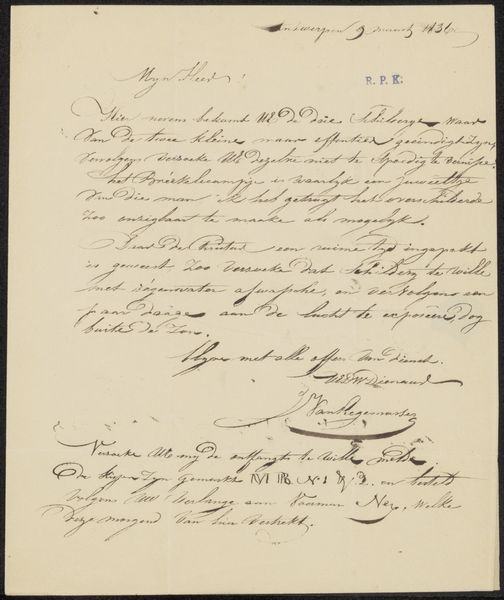 Antwerpen 9 maart 1836
Myn Heer!
R. P. K.
Hier nevens bekomt UE de drie Schilderye, waar
van de twee kleine maar effentief geeindigt zyn,
vervolgens versoeke UE dezelve niet te spoedig te vernisse.
het Brékelencampje is waarlyk een juweeltje
van dies man ik heb getragt het overschilderde
zoo onzigbaar te maake als mogelyk.
Daar de Ruitur een ruime tyd ingepakt
is geweest, zoo versoeke dat Schildery te wille
met régenwater afwassche, en vervolgens een
paar daage aan de lucht te exposeere, dog
buite de Zon.
Blyve met alle offer van dienst.
UEDW Dienaar
J Van Regemorter
Versoeke UE my de ontfangst te wille melde
de kisje zyn gemerkt MB N 1 & 2. en bestelt
volgens UW verlange aan Vaarman Nex, welke
deze morgend van hier vertrekt.